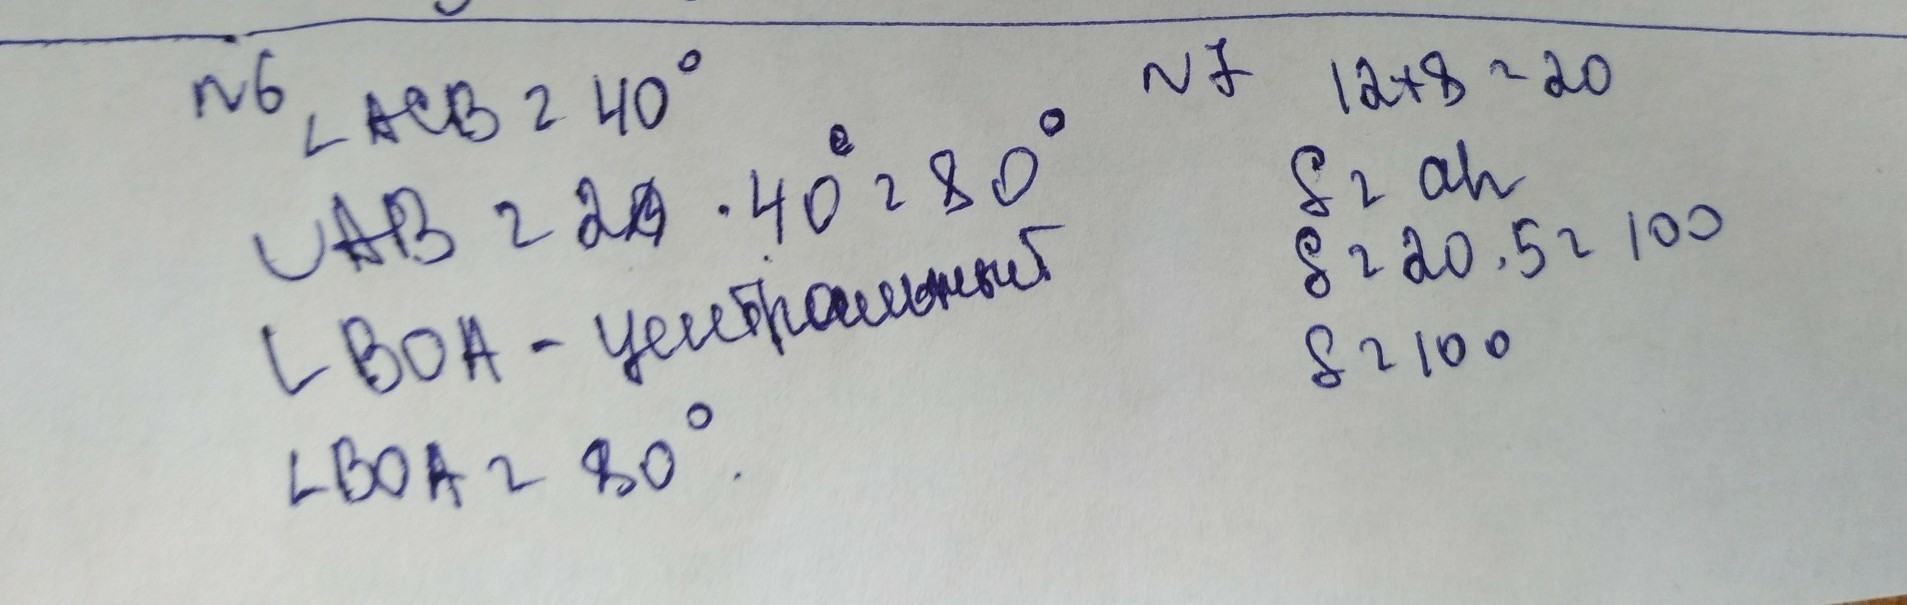 №6
∠ACB = 40°
∪AB = 2 · 40° = 80°
∠BOA - центральный
∠BOA = 80°.
№7 12+8 = 20
S = ah
S = 20 · 5 = 100
S = 100